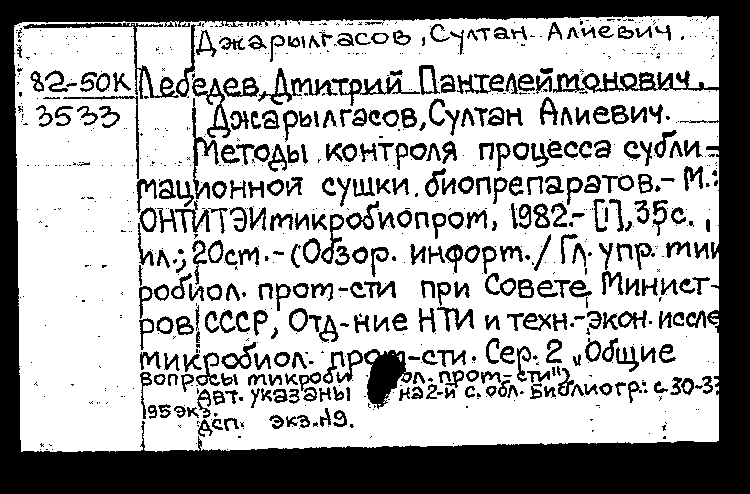 Джарылгасов, Султан Алиевич.
82-50К Лебедев, Дмитрий Пантелеймонович.
3533 Джарылгасов, Султан Алиевич.
Методы контроля процесса субли-
мационной сушки биопрепаратов.- М.:
ОНТИТЭИмикробиопром, 1982.- [1], 35с.,
ил.; 20см.-(Обзор. информ./Гл. упр. мик
робиол. пром-сти при Совете Минист-
ров СССР, Отд-ние НТИ и техн.-экон. иссле
микробиол. пром-сти. Сер. 2 „Общие
вопросы микробиол. пром-сти")
Авт. указаны на 2-й с. обл. Библиогр.: с. 30-33
195 экз.
ДСП. экз. №9.